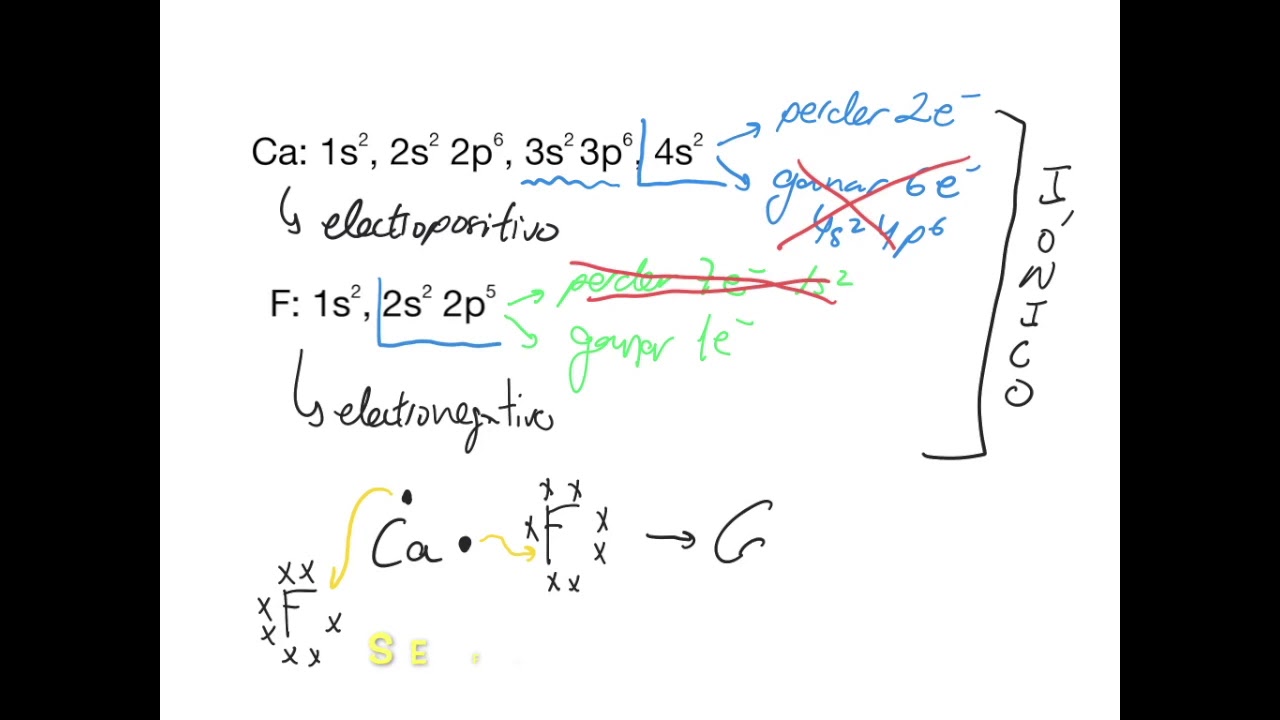 Ca: 1s², 2s² 2p⁶, 3s² 3p⁶, 4s²
perder 2e⁻
ganar 6e⁻
4s² 4p⁶
electropositivo
F: 1s², 2s² 2p⁵
perder 7e⁻ 1s²
ganar 1e⁻
electronegativo
IÓNICO
Ca F → C
F
SE